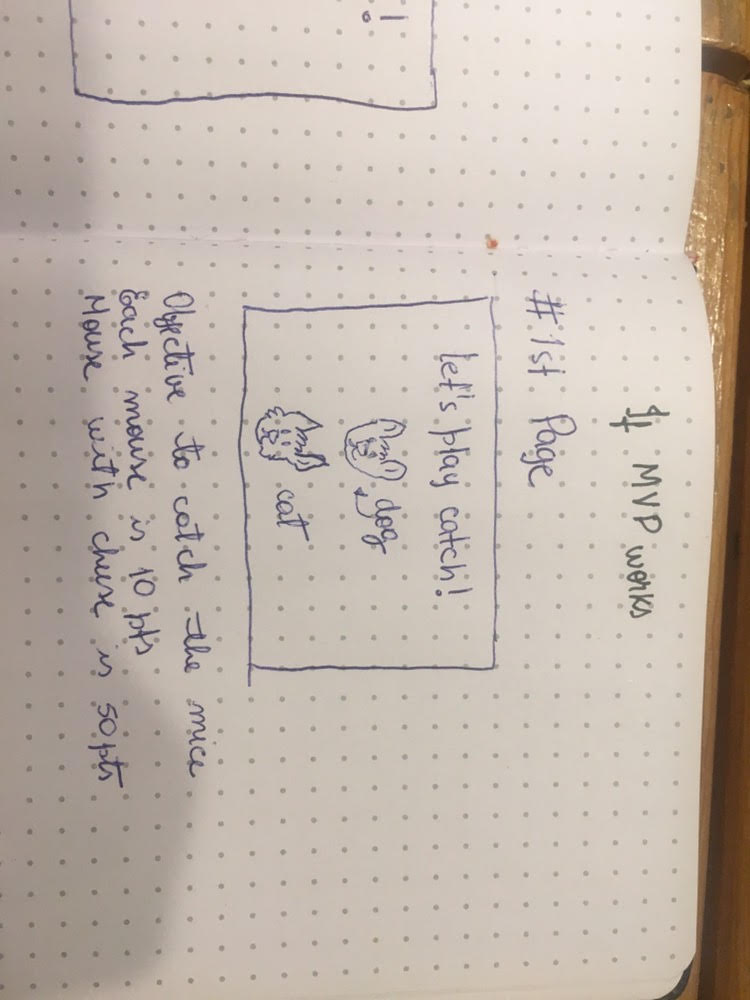 If MVP works
#1st Page
let's play catch!
dog
cat
Objective to catch the mice
Each mouse is 10 pts
Mouse with chese is 50pts
!